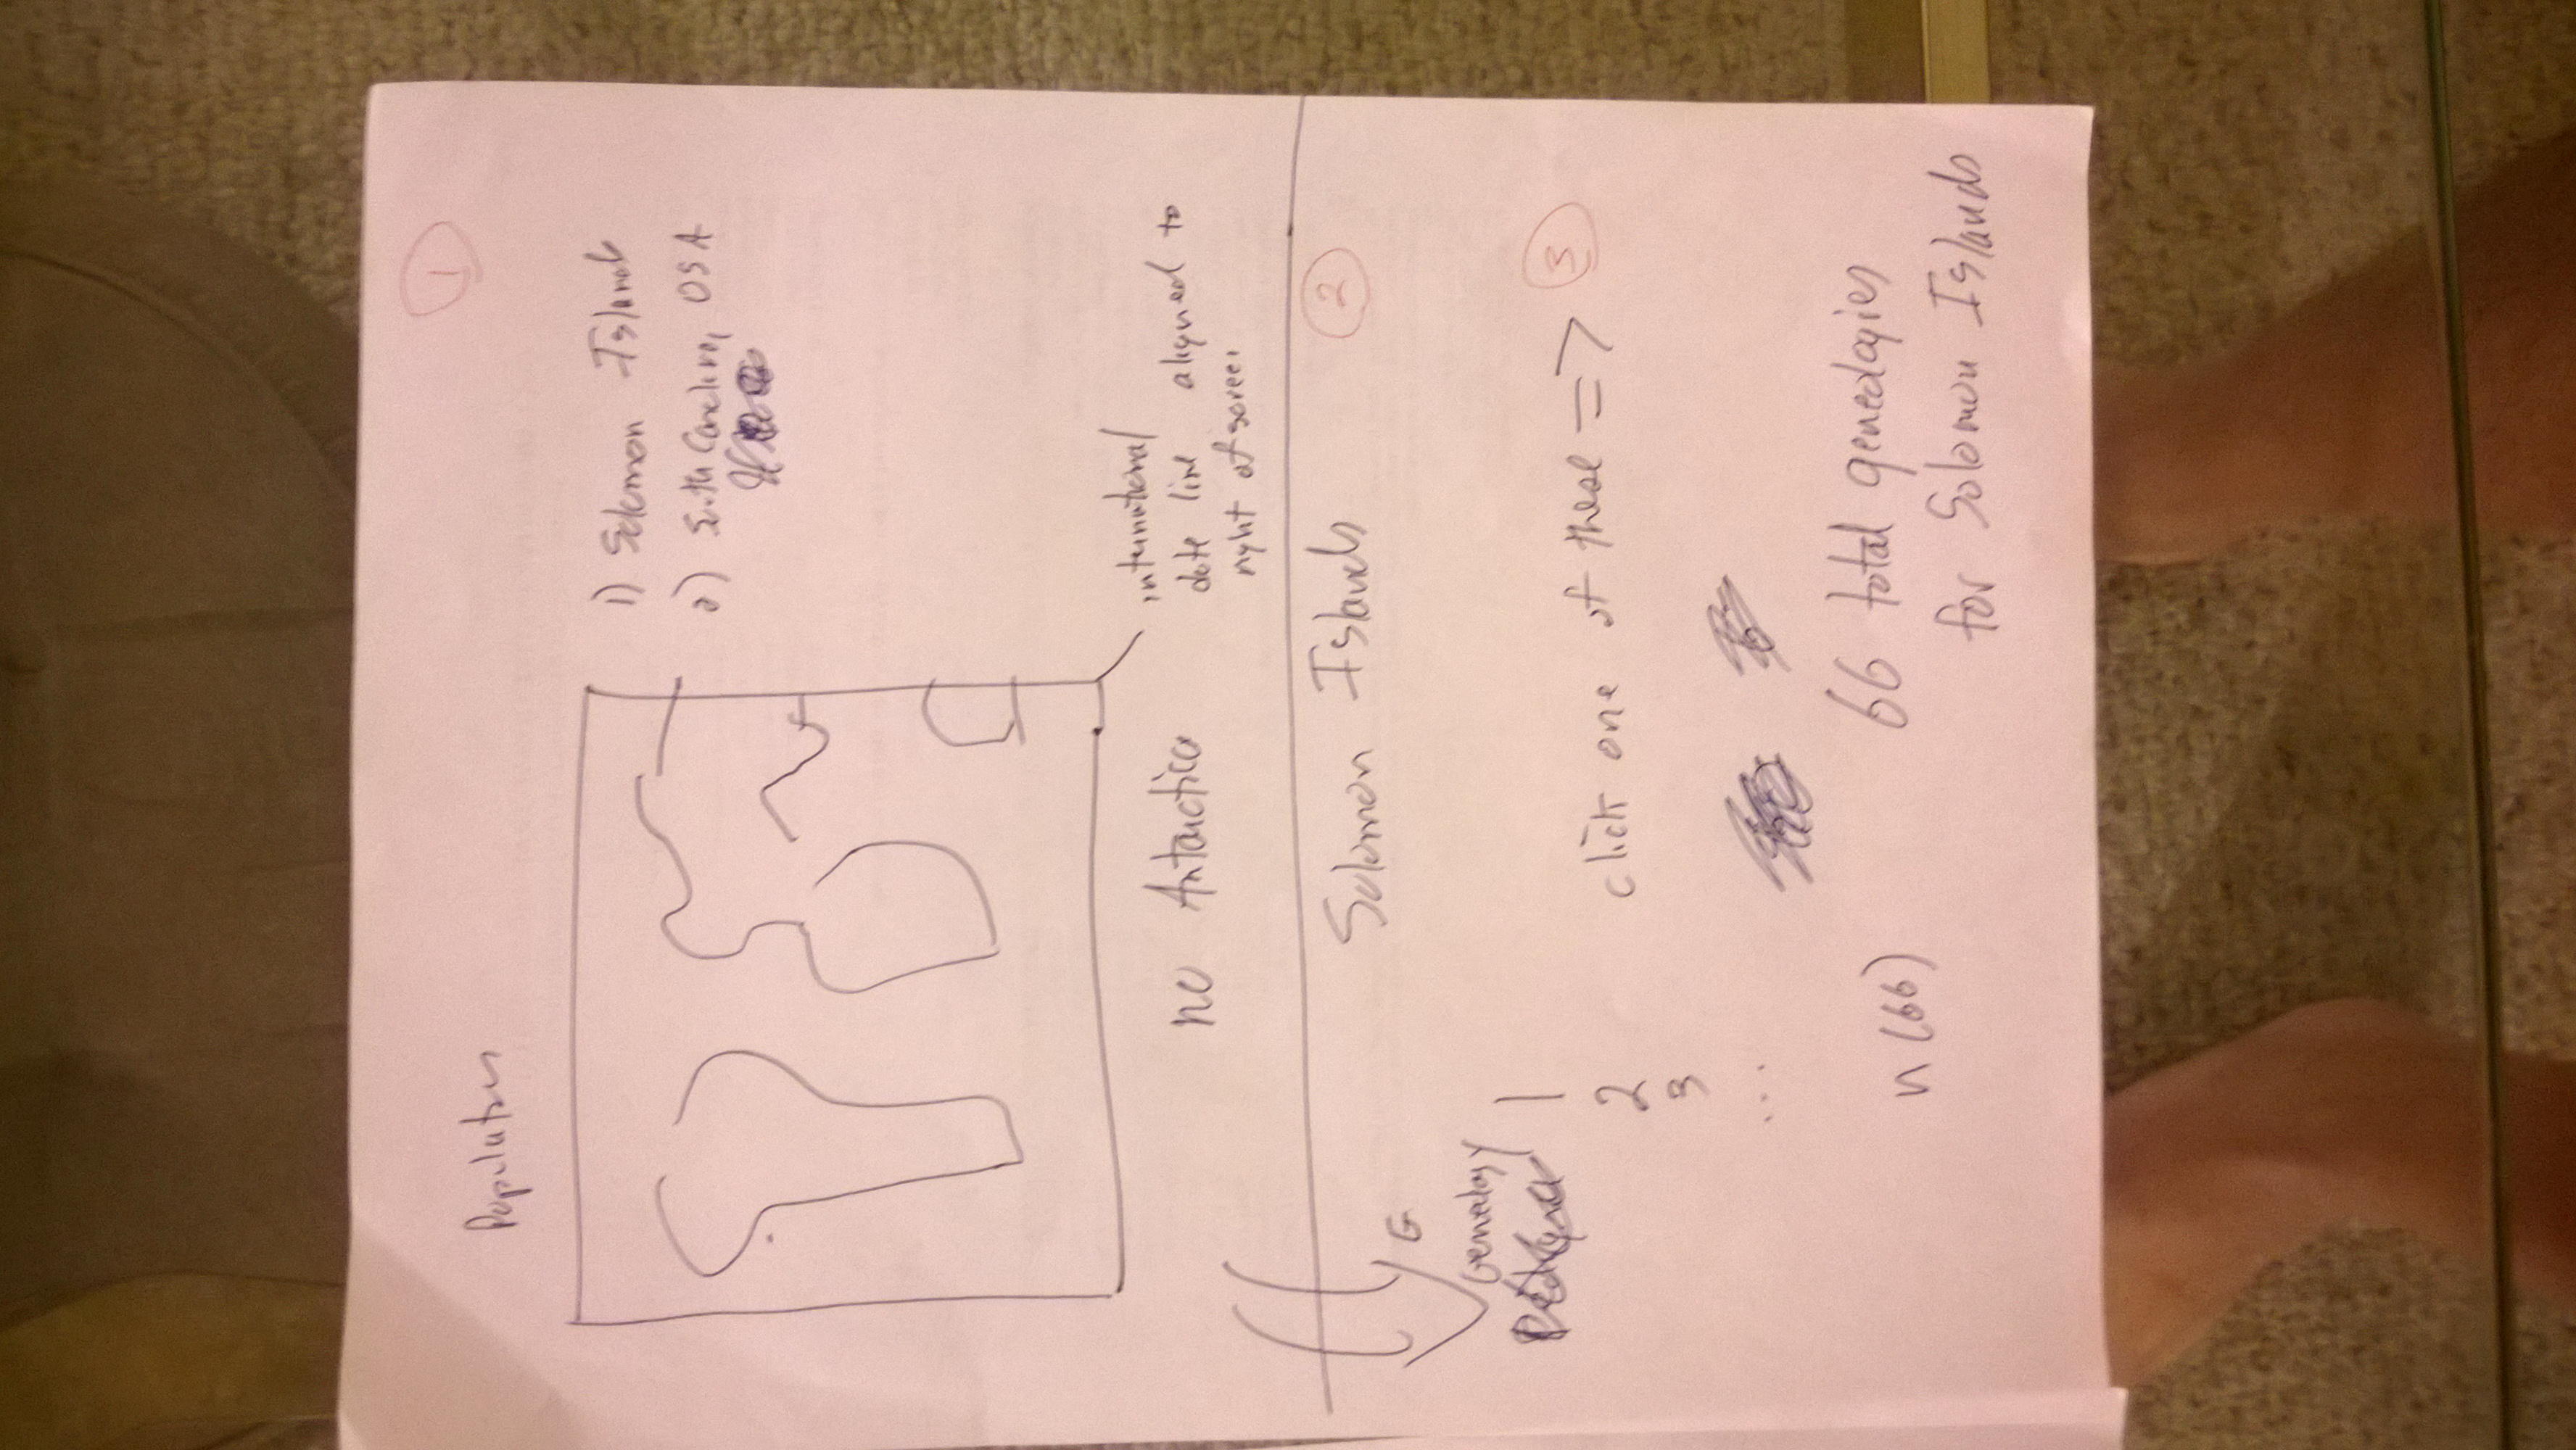 1
Populations
1) Solomon Islands
2) South Carolina, USA
no Antarctica
international
date line aligned to
right of screen
Solomon Islands
2
G
Genealogy
1
2
3
...
n (66)
click one of these => 3
66 total genealogies
for Solomon Islands